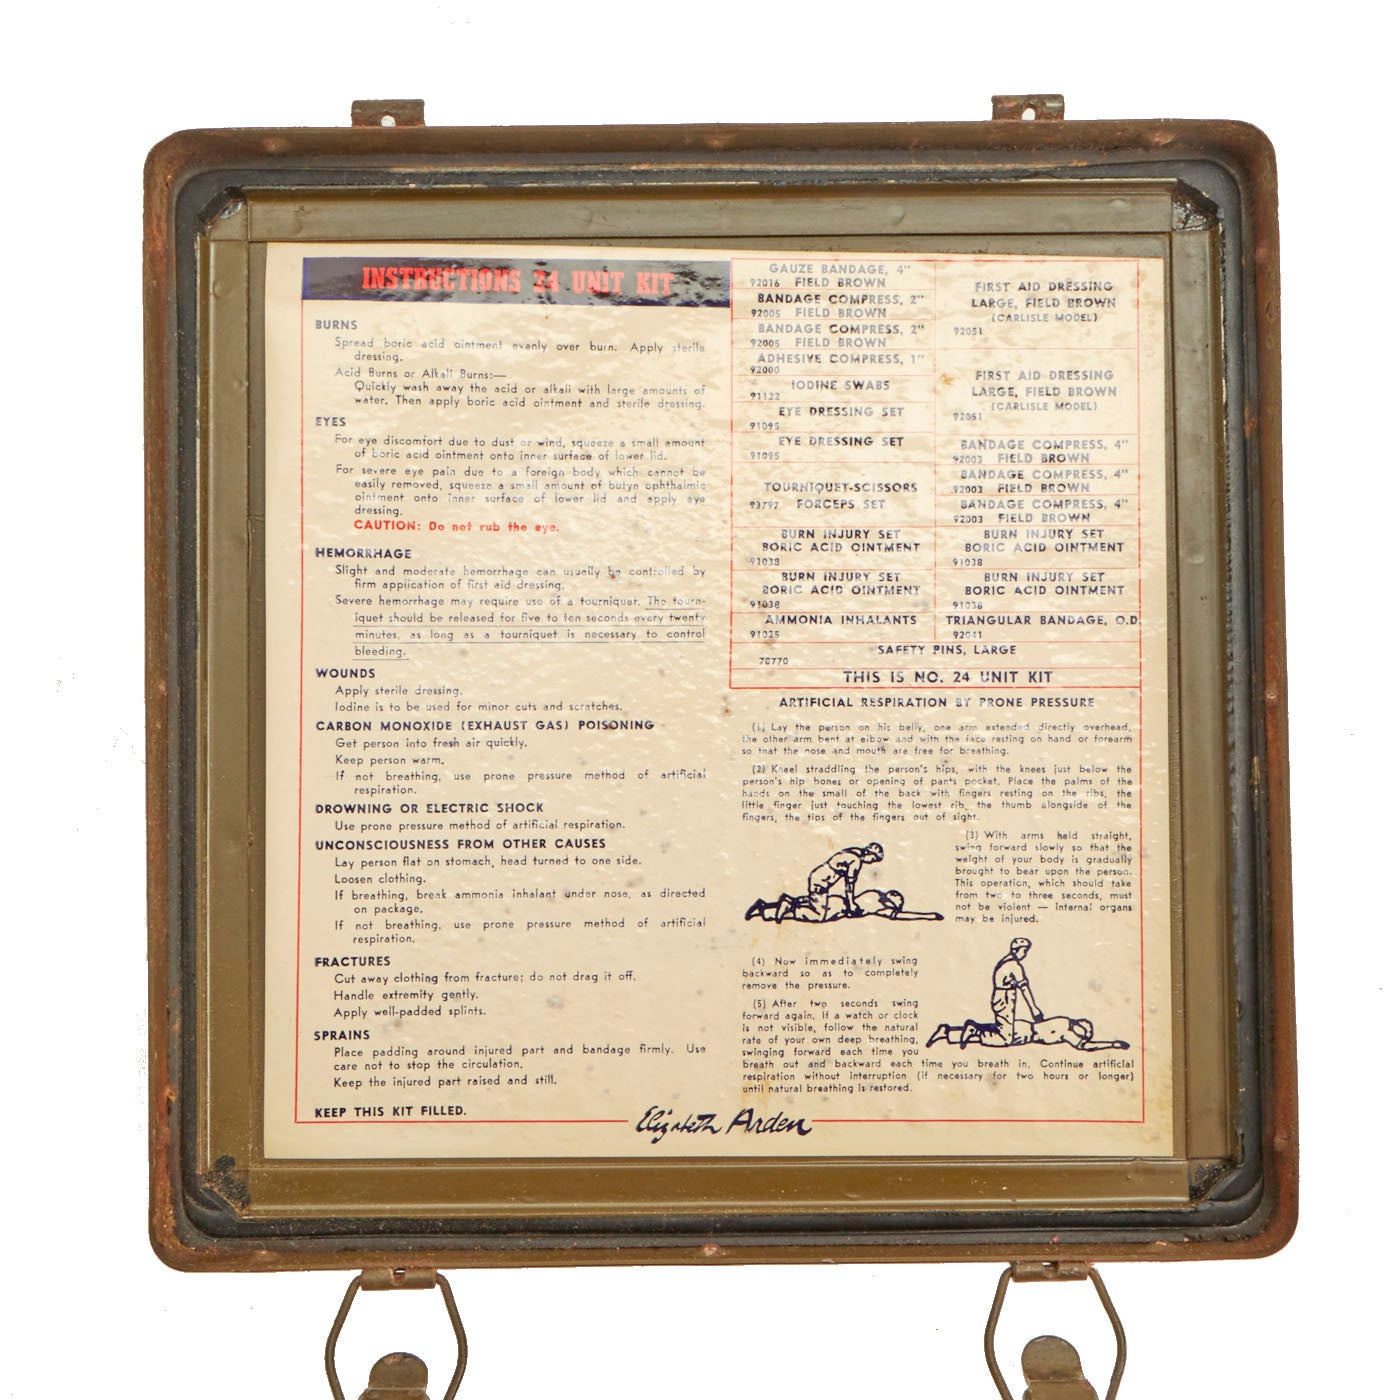 INSTRUCTIONS 24 UNIT KIT
BURNS
Spread boric acid ointment evenly over burn. Apply sterile
dressing.
Acid Burns or Alkali Burns:—
Quickly wash away the acid or alkali with large amounts of
water. Then apply boric acid ointment and sterile dressing.
EYES
For eye discomfort due to dust or wind, squeeze a small amount
of boric acid ointment onto inner surface of lower lid.
For severe eye pain due to a foreign body which cannot be
easily removed, squeeze a small amount of butyn ophthalmic
ointment onto inner surface of lower lid and apply eye
dressing.
CAUTION: Do not rub the eye.
HEMORRHAGE
Slight and moderate hemorrhage can usually be controlled by
firm application of first aid dressing.
Severe hemorrhage may require use of a tourniquet. The tourn-
iquet should be released for five to ten seconds every twenty
minutes, as long as a tourniquet is necessary to control
bleeding.
WOUNDS
Apply sterile dressing.
Iodine is to be used for minor cuts and scratches.
CARBON MONOXIDE (EXHAUST GAS) POISONING
Get person into fresh air quickly.
Keep person warm.
If not breathing, use prone pressure method of artificial
respiration.
DROWNING OR ELECTRIC SHOCK
Use prone pressure method of artificial respiration.
UNCONSCIOUSNESS FROM OTHER CAUSES
Lay person flat on stomach, head turned to one side.
Loosen clothing.
If breathing, break ammonia inhalant under nose, as directed
on package.
If not breathing, use prone pressure method of artificial
respiration.
FRACTURES
Cut away clothing from fracture; do not drag it off.
Handle extremity gently.
Apply well-padded splints.
SPRAINS
Place padding around injured part and bandage firmly. Use
care not to stop the circulation.
Keep the injured part raised and still.
KEEP THIS KIT FILLED.
GAUZE BANDAGE, 4"
92016 FIELD BROWN
BANDAGE COMPRESS, 2"
92005 FIELD BROWN
BANDAGE COMPRESS, 2"
92005 FIELD BROWN
ADHESIVE COMPRESS, 1"
92000
IODINE SWABS
91122
EYE DRESSING SET
91095
EYE DRESSING SET
91095
TOURNIQUET-SCISSORS
93797 FORCEPS SET
BURN INJURY SET
BORIC ACID OINTMENT
91038
BURN INJURY SET
BORIC ACID OINTMENT
91038
AMMONIA INHALANTS
91025
FIRST AID DRESSING
LARGE, FIELD BROWN
(CARLISLE MODEL)
92051
FIRST AID DRESSING
LARGE, FIELD BROWN
(CARLISLE MODEL)
92051
BANDAGE COMPRESS, 4"
92003 FIELD BROWN
BANDAGE COMPRESS, 4"
92003 FIELD BROWN
BANDAGE COMPRESS, 4"
92003 FIELD BROWN
BURN INJURY SET
BORIC ACID OINTMENT
91038
BURN INJURY SET
BORIC ACID OINTMENT
91038
TRIANGULAR BANDAGE, O.D.
92041
SAFETY PINS, LARGE
78770
THIS IS NO. 24 UNIT KIT
ARTIFICIAL RESPIRATION BY PRONE PRESSURE
(1) Lay the person on his belly, one arm extended directly overhead,
the other arm bent at elbow and with the face resting on hand or forearm
so that the nose and mouth are free for breathing.
(2) Kneel straddling the person's hips, with the knees just below the
person's hip bones or opening of pants pocket. Place the palms of the
hands on the small of the back with fingers resting on the ribs, the
little finger just touching the lowest rib, the thumb alongside of the
fingers, the tips of the fingers out of sight.
(3) With arms held straight,
swing forward slowly so that the
weight of your body is gradually
brought to bear upon the person.
This operation, which should take
from two to three seconds, must
not be violent — internal organs
may be injured.
(4) Now immediately swing
backward so as to completely
remove the pressure.
(5) After two seconds swing
forward again. If a watch or clock
is not visible, follow the natural
rate of your own deep breathing,
swinging forward each time you
breath out and backward each time you breath in. Continue artificial
respiration without interruption (if necessary for two hours or longer)
until natural breathing is restored.
Elizabeth Arden